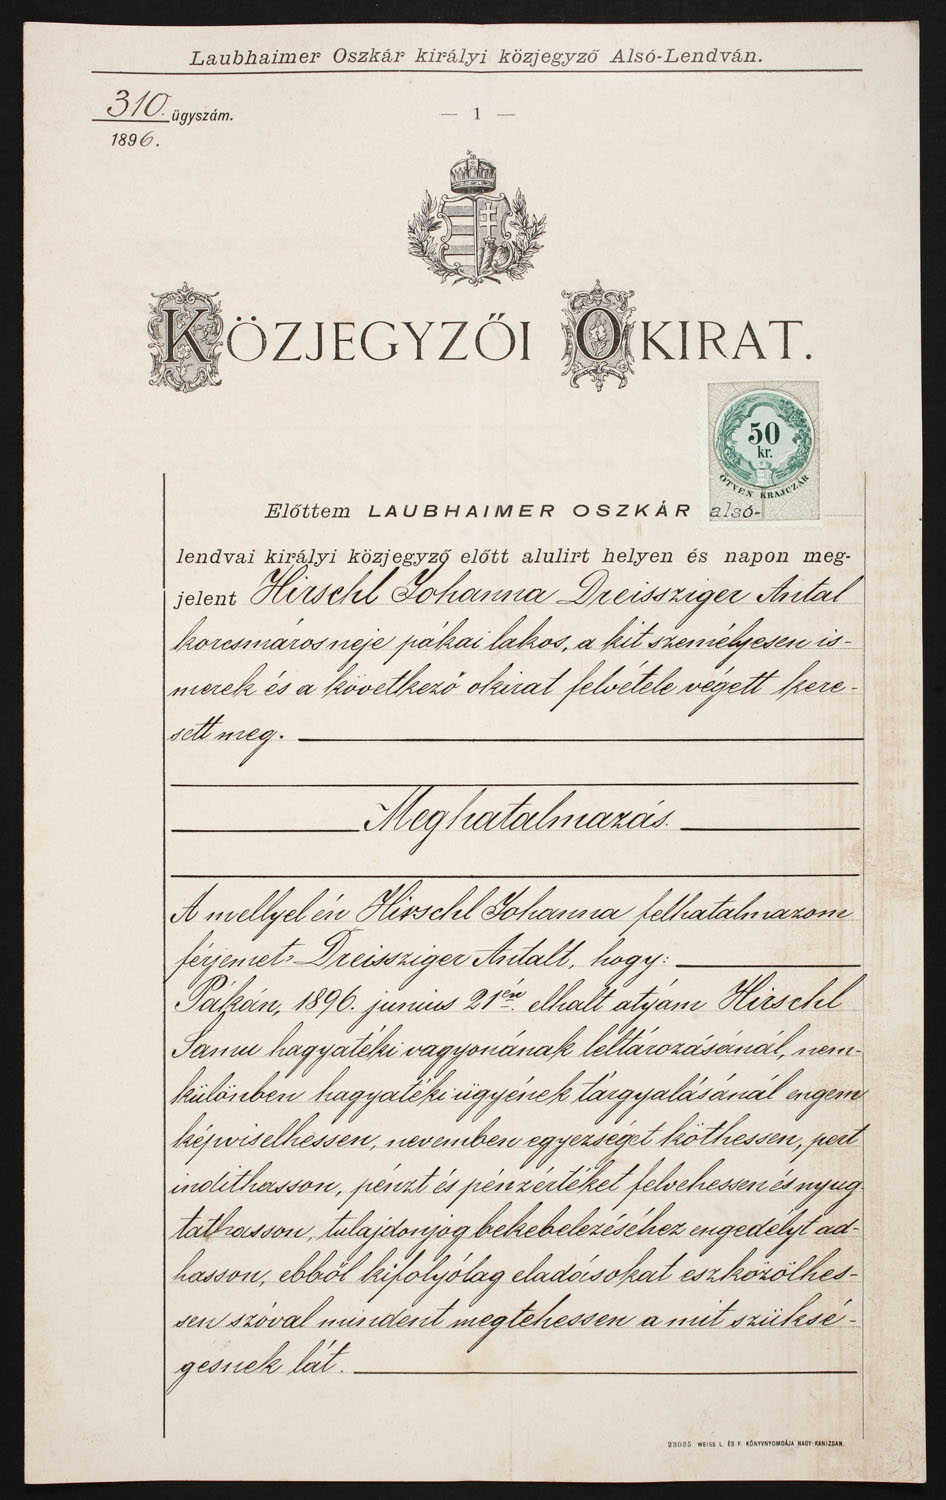 Laubhaimer Oszkár királyi közjegyző Alsó-Lendván.
310. ügyszám.
1896.
— 1 —
KÖZJEGYZŐI OKIRAT.
50
kr.
ÖTVEN KRAJCZÁR
Előttem LAUBHAIMER OSZKÁR alsó-
lendvai királyi közjegyző előtt alulirt helyen és napon meg-
jelent Hirschl Johanna Dreissziger Antal
korcsmáros neje pákai lakos, a kit személyesen is-
merek és a következő okirat felvétele végett kere-
sett meg.
Meghatalmazás.
A mellyel én Hirschl Johanna felhatalmazom
férjemet Dreissziger Antalt, hogy:
Pákán, 1896. junius 21én. elhalt atyám Hirschl
Samu hagyatéki vagyonának leltározásánál, nem-
különben hagyatéki ügyének tárgyalásánál engem
képviselhessen, nevemben egyezséget köthessen, pert
indíthasson, pénzt és pénzértéket felvehessen és nyug
tathasson, tulajdonjog bekebelezéséhez engedélyt ad-
hasson, ebből kifolyólag eladásokat eszközölhes-
sen szóval mindent megtehessen a mit szüksé-
gesnek lát.
23035 WEISS L. ÉS F. KÖNYVNYOMDÁJA NAGY-KANIZSAN.